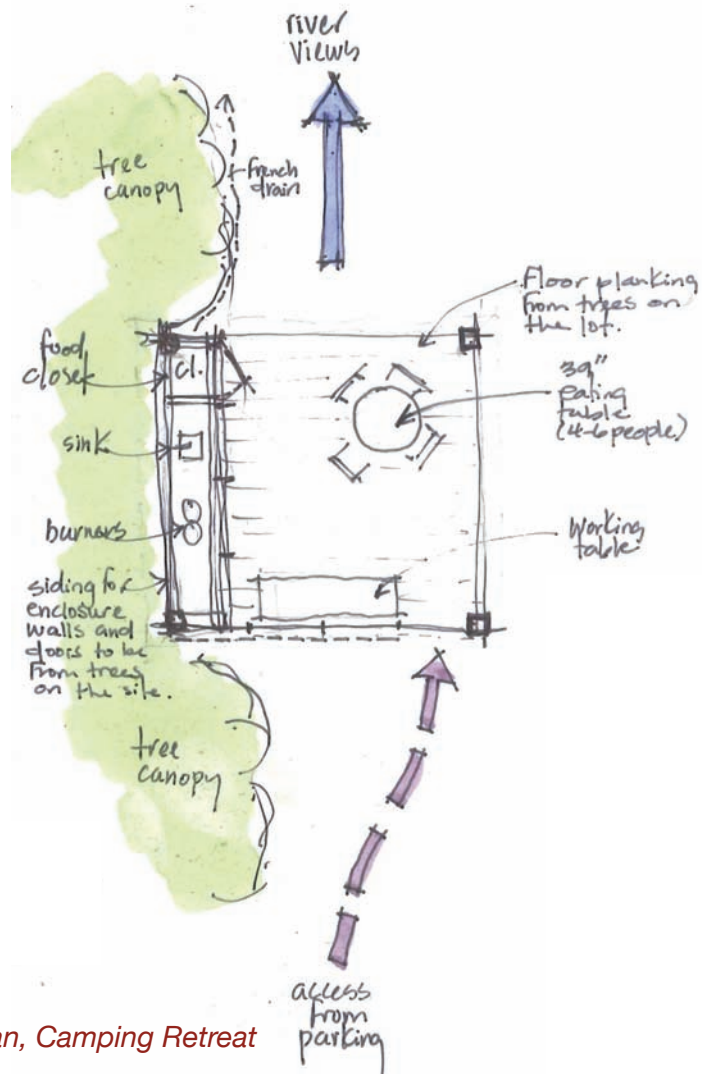 river
views
tree
canopy
french
drain
Floor planking
from trees on
the lot.
food
closet
cl.
39"
eating
table
(4-6 people)
sink
burners
working
table
siding for
enclosure
walls and
doors to be
from trees
on the site.
tree
canopy
access
from
parking
an, Camping Retreat